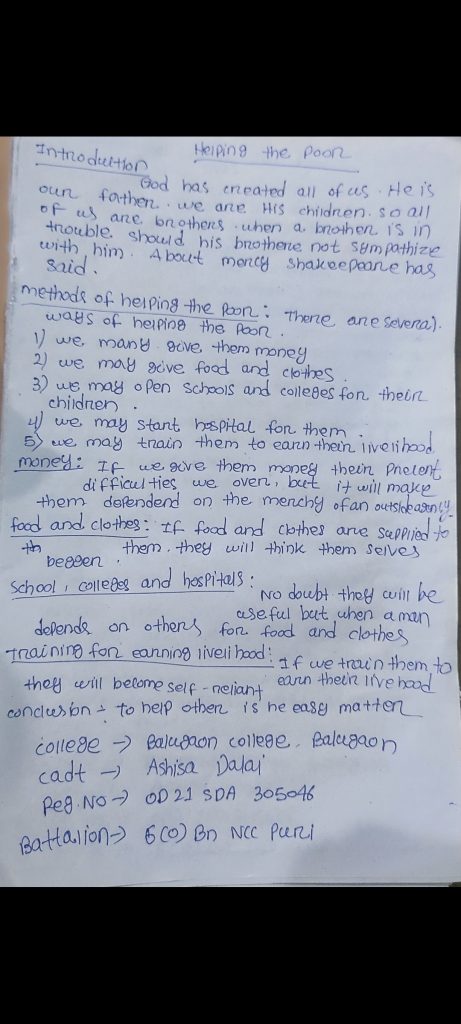 Helping the Poor
Introduction
God has created all of us. He is
our father. we are His children. so all
of us are brothers. when a brother is in
trouble should his brothere not sympathize
with him. About mercy shakeepeare has
said.
methods of helping the Poor: There are several.
ways of helping the Poor.
1) we, many give, them money
2) we may give food and clothes.
3) we may open schools and colleges for their
children.
4) we may start hospital for them.
5) we may train them to earn their livelihood.
money: If we give them money their Precent
difficulties we over, but it will make
them dependend on the merchy of an outside agency
food and clothes: If food and clothes are supplied to
th them. they will think them selves
beggen.
School, colleges and hospitals: No doubt they will be
useful but when a man
depends on others for food and clothes
Training for earning livelihood: If we train them to
they will become self-reliant earn their live hood
conclusion - to help other is he easy matter
college → Balugaon college, Balugaon
cadt → Ashisa Dalai
Reg. No → OD21 SDA 305046
Battalion → 6(O) Bn NCC Puri